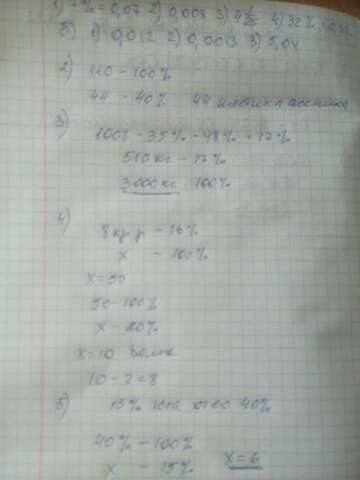 1) 7% = 0,07 2) 0,008 3) 4) 32% = 0,32
б) 1) 0,012 2) 0,0013 3) 5,04
2) 110 - 100%
44 - 40% 44
3) 100% - 35% - 48% = 17%
510 кг - 17%
3000 кг 100%
4)
8 кр. р. - 16%
x - 100%
x = 50
50 - 100%
x - 20%
x = 10
10 - 2 = 8
5) 15% от 40%
40% - 100%
x - 15% x = 6